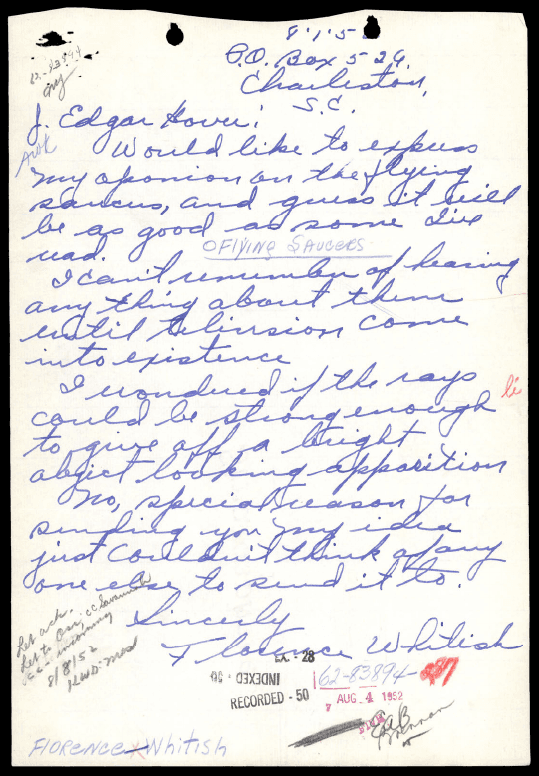 8/1/5
P.O. Box 526.
Charleston,
S.C.
62-83894
J. Edgar Hover:
Would like to express
my oponion on the flying
saucers, and guess it will
be as good as some I've
read.
O FLYING SAUCERS
I can't remember of hearing
any thing about them
until television come
into existence
I wondered if the rays
could be strong enough
to give off a bright
object looking apparition
No, special reason for
sending you my idea
just couldn't think of any
one else to send it to.
Sincerly
Florence Whitish
Let ack
Let to Osi, cc Savannah
cc incoming
8/8/52
EX. - 28
INDEXED - 50
RECORDED - 50
62-83894-
AUG 4 1952
FlORENCE Whitish